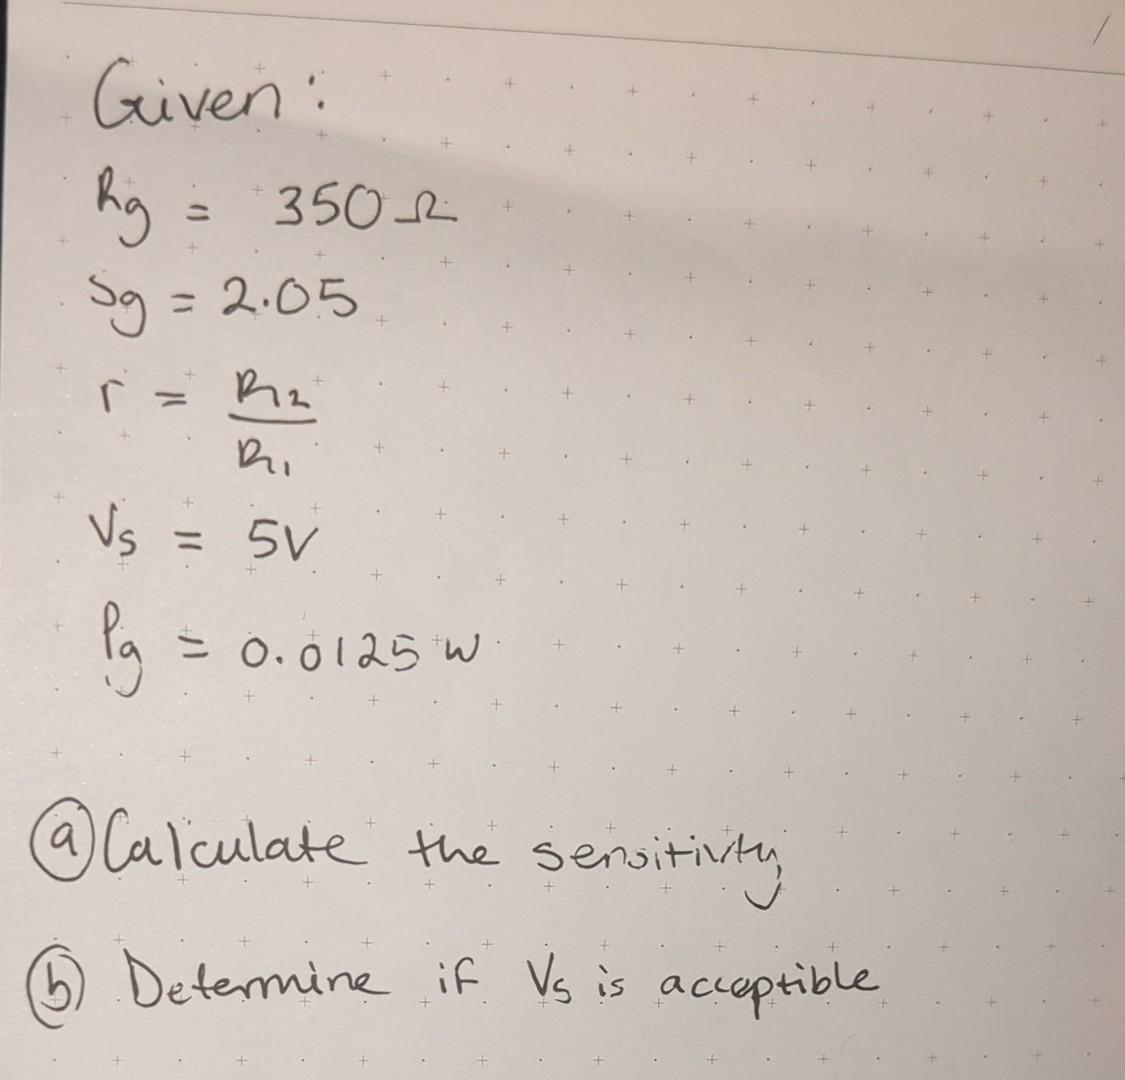 Given:
Rg = 350Ω
Sg = 2.05
r = R2
R1
Vs = 5V
Pg = 0.0125 W
a Calculate the sensitivity
b Determine if Vs is acceptible